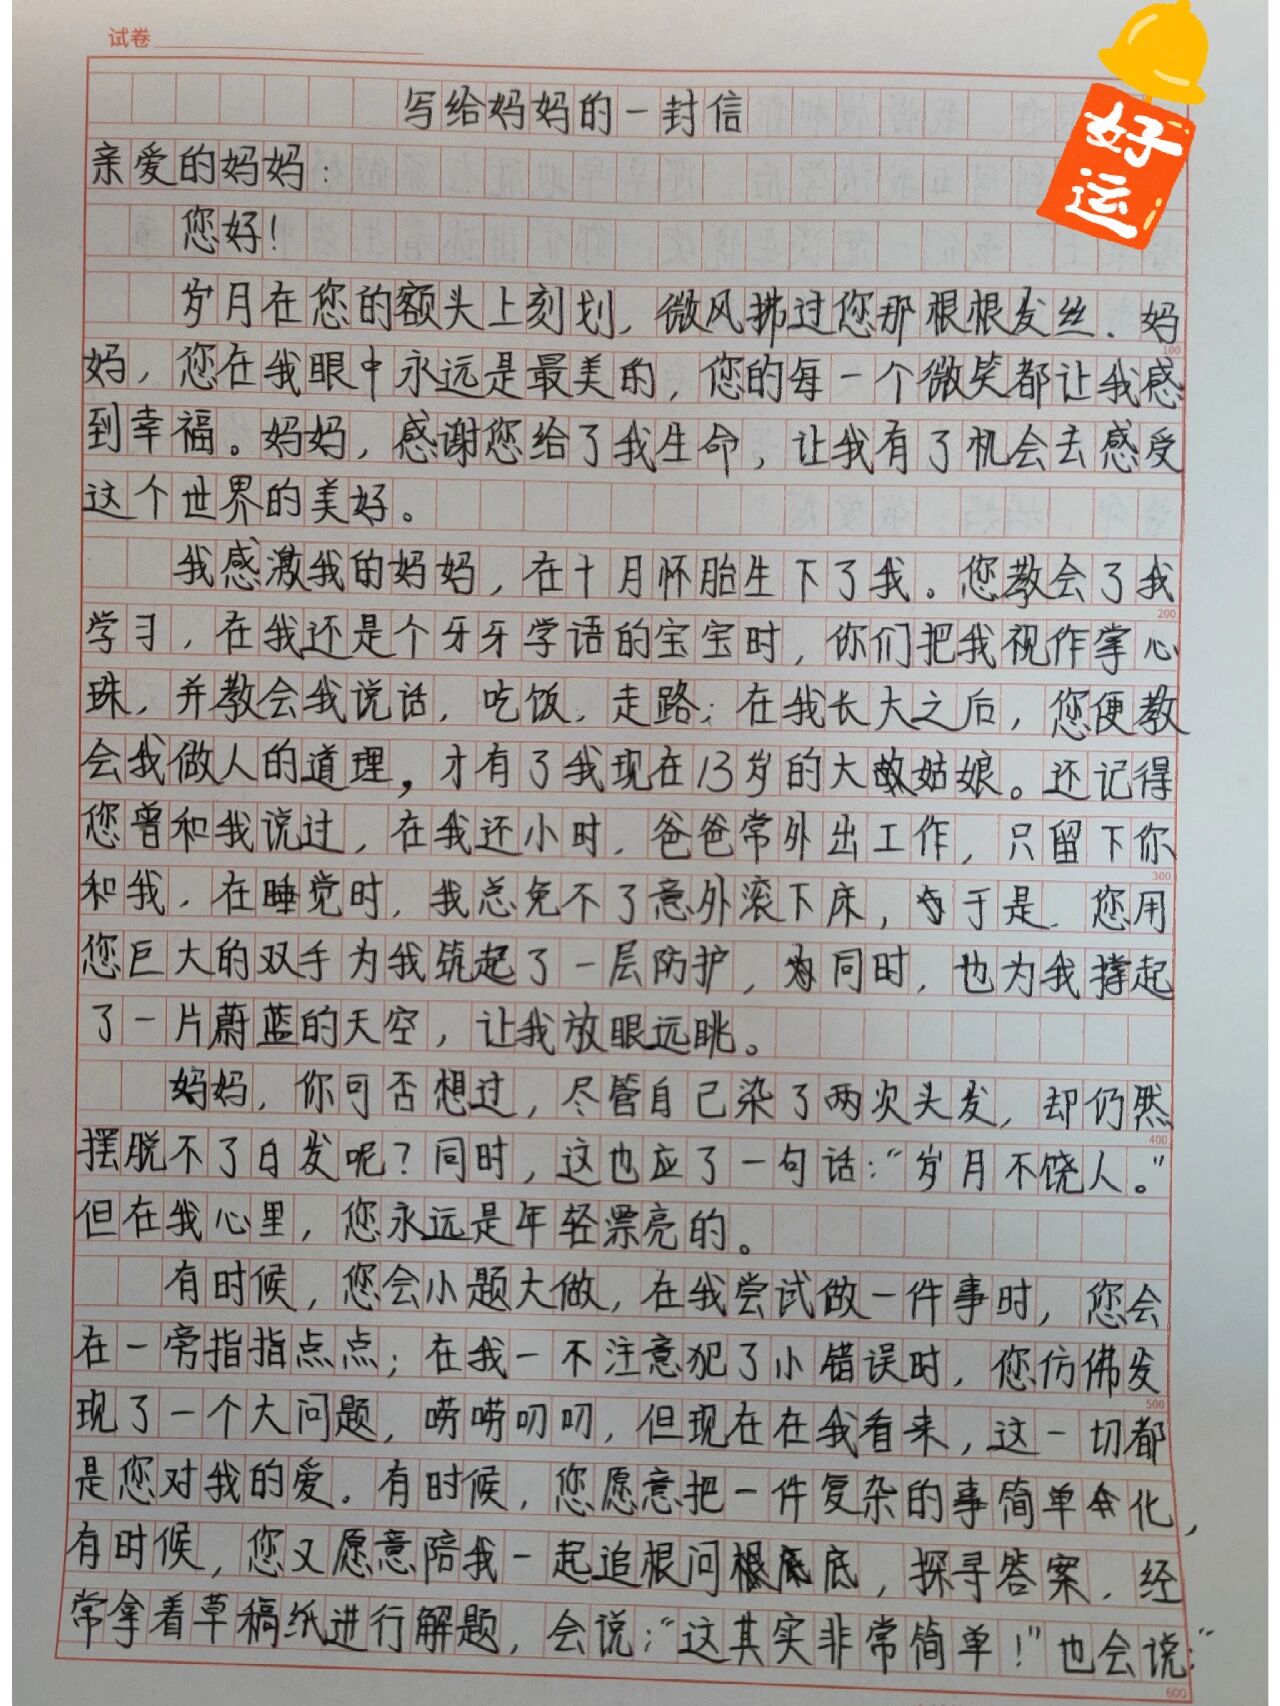 试卷
好
运
写给妈妈的一封信
亲爱的妈妈：
您好！
岁月在您的额头上刻划，微风拂过您那根根发丝．妈
100
妈，您在我眼中永远是最美的，您的每一个微笑都让我感
到幸福。妈妈，感谢您给了我生命，让我有了机会去感受
这个世界的美好。
我感激我的妈妈，在十月怀胎生下了我。您教会了我
200
学习，在我还是个牙牙学语的宝宝时，你们把我视作掌心
珠，并教会我说话，吃饭，走路；在我长大之后，您便教
会我做人的道理，才有了我现在13岁的大姑娘。还记得
您曾和我说过，在我还小时，爸爸常外出工作，只留下你
300
和我，在睡觉时，我总免不了意外滚下床，于是，您用
您巨大的双手为我筑起了一层防护，同时，也为我撑起
了一片蔚蓝的天空，让我放眼远眺。
妈妈，你可否想过，尽管自己染了两次头发，却仍然
400
摆脱不了白发呢？同时，这也应了一句话：“岁月不饶人。”
但在我心里，您永远是年轻漂亮的。
有时候，您会小题大做，在我尝试做一件事时，您会
在一旁指指点点；在我一不注意犯了小错误时，您仿佛发
500
现了一个大问题，唠唠叨叨，但现在在我看来，这一切都
是您对我的爱。有时候，您愿意把一件复杂的事简单化，
有时候，您又愿意陪我一起追根问底，探寻答案．经
常拿着草稿纸进行解题，会说：“这其实非常简单！”也会说：“
600